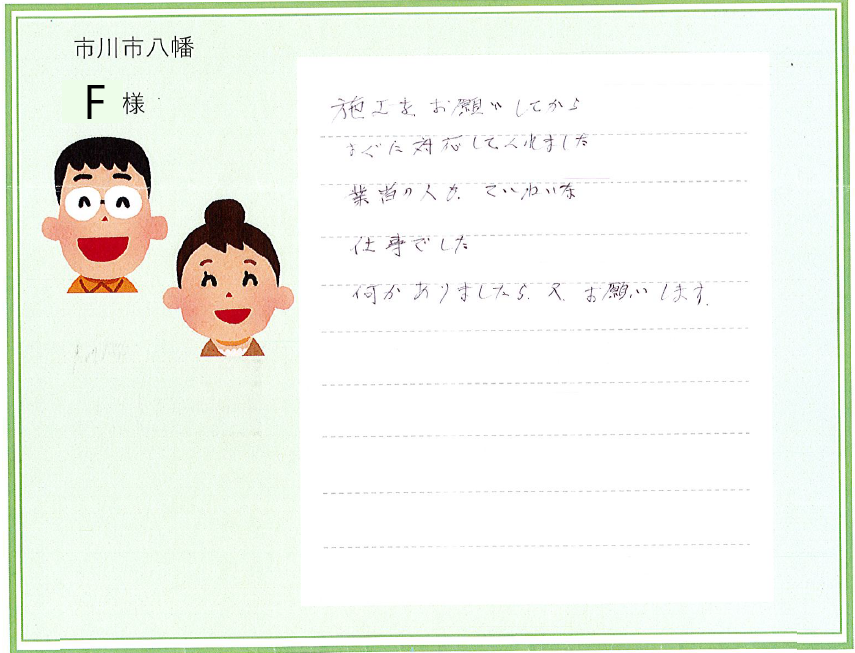 市川市八幡
F 様
施工をお願いしてから
すぐに対応してくれました
業者の人も ていねいな
仕事でした
何かありましたら、又、お願いします。